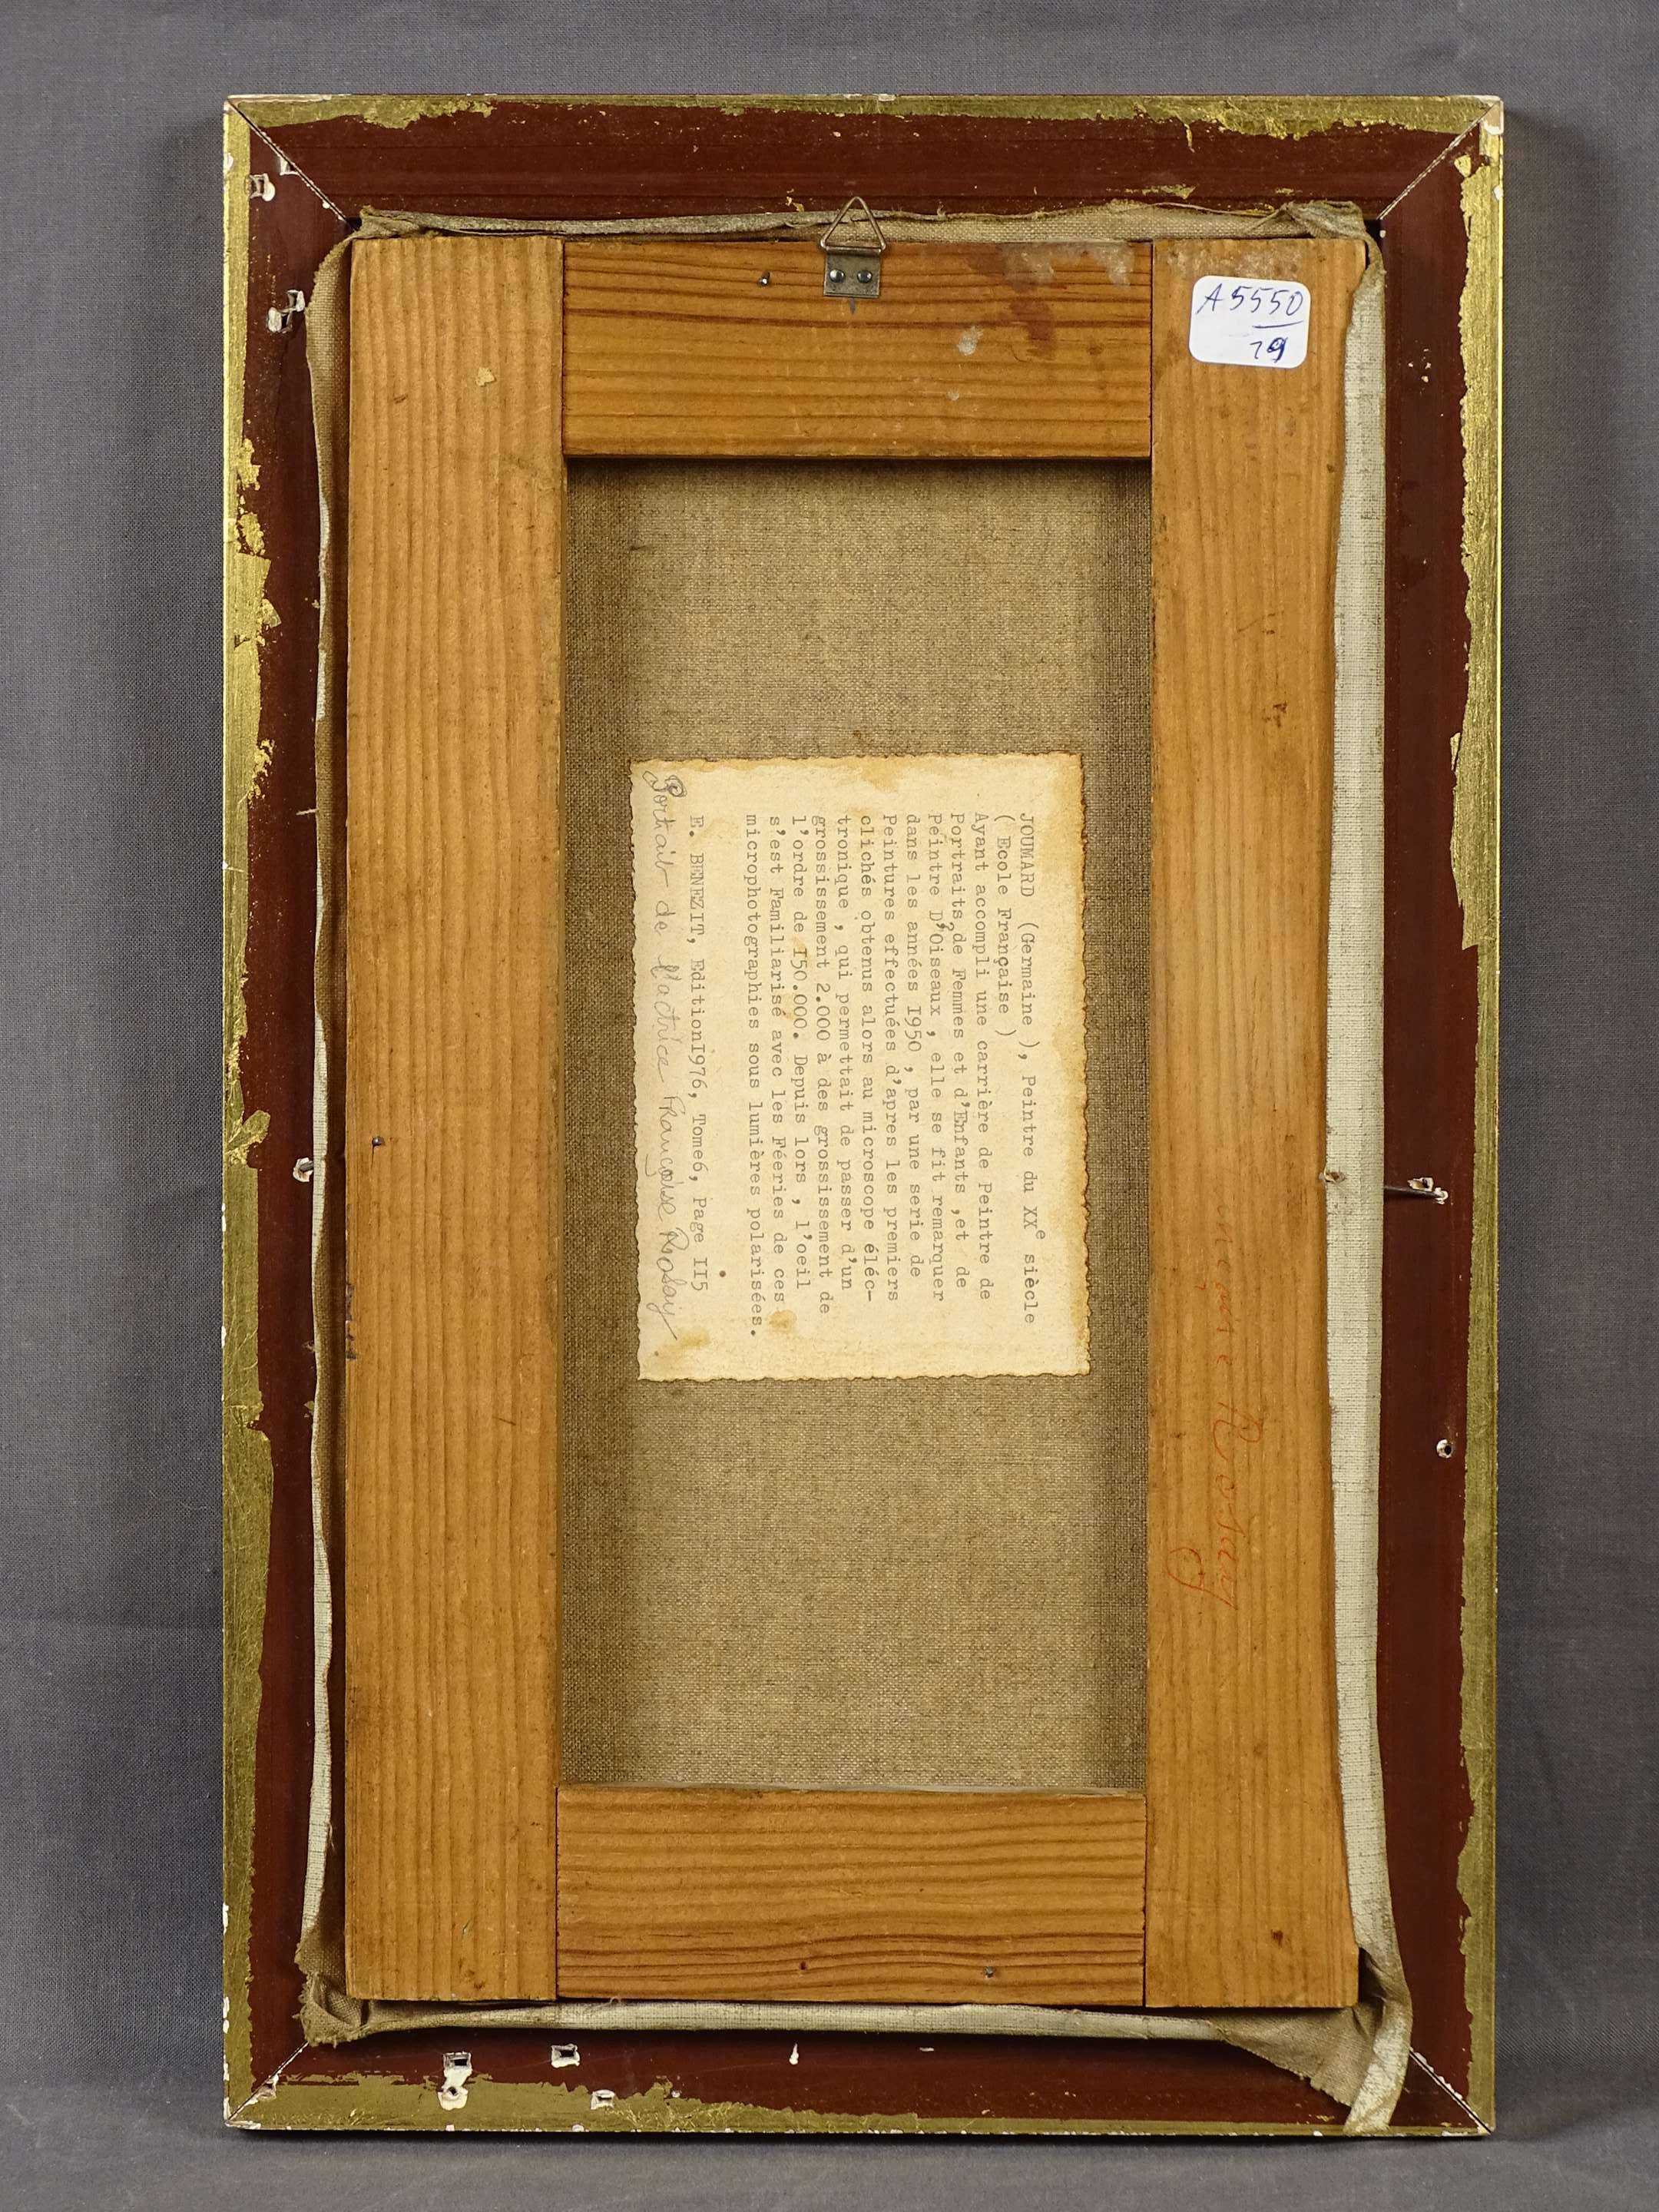 A 5550
79
JOUMARD (Germaine ), Peintre du XXe siècle
( Ecole Française )
Ayant accompli une carrière de Peintre de
Portraits, de Femmes et d'Enfants ,et de
Peintre D'Oiseaux , elle se fit remarquer
dans les années I950 , par une serie de
Peintures effectuées d'apres les premiers
clichés obtenus alors au microscope éléc-
tronique , qui permettait de passer d'un
grossissement 2.000 à des grossissement de
l'ordre de I50.000. Depuis lors , l'oeil
s'est Familiarisé avec les Féeries de ces
microphotographies sous lumières polarisées.
E. BENEZIT, EditionI976, Tome6, Page II5
Portrait de l'actrice Françoise Rosay
Rosay